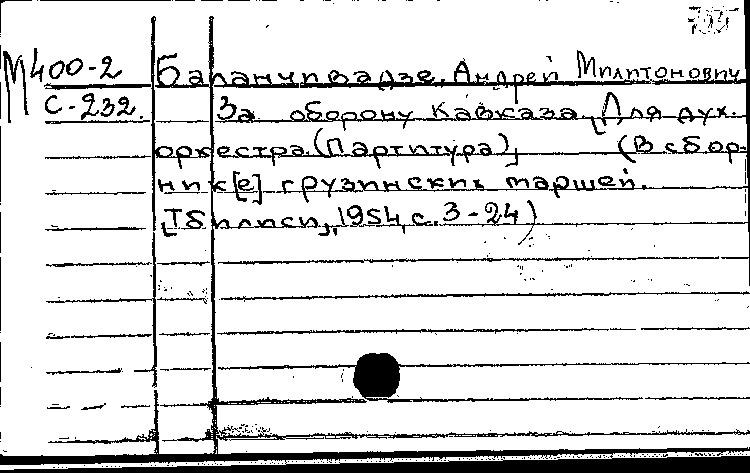 М400-2 Баланчивадзе, Андрей Милитонович
С-232. За оборону Кавказа [Для дух.
оркестра. (Партитура)] (В сбор-
ник[е] грузинских маршей.
[Тбилиси], 1954, с. 3-24)